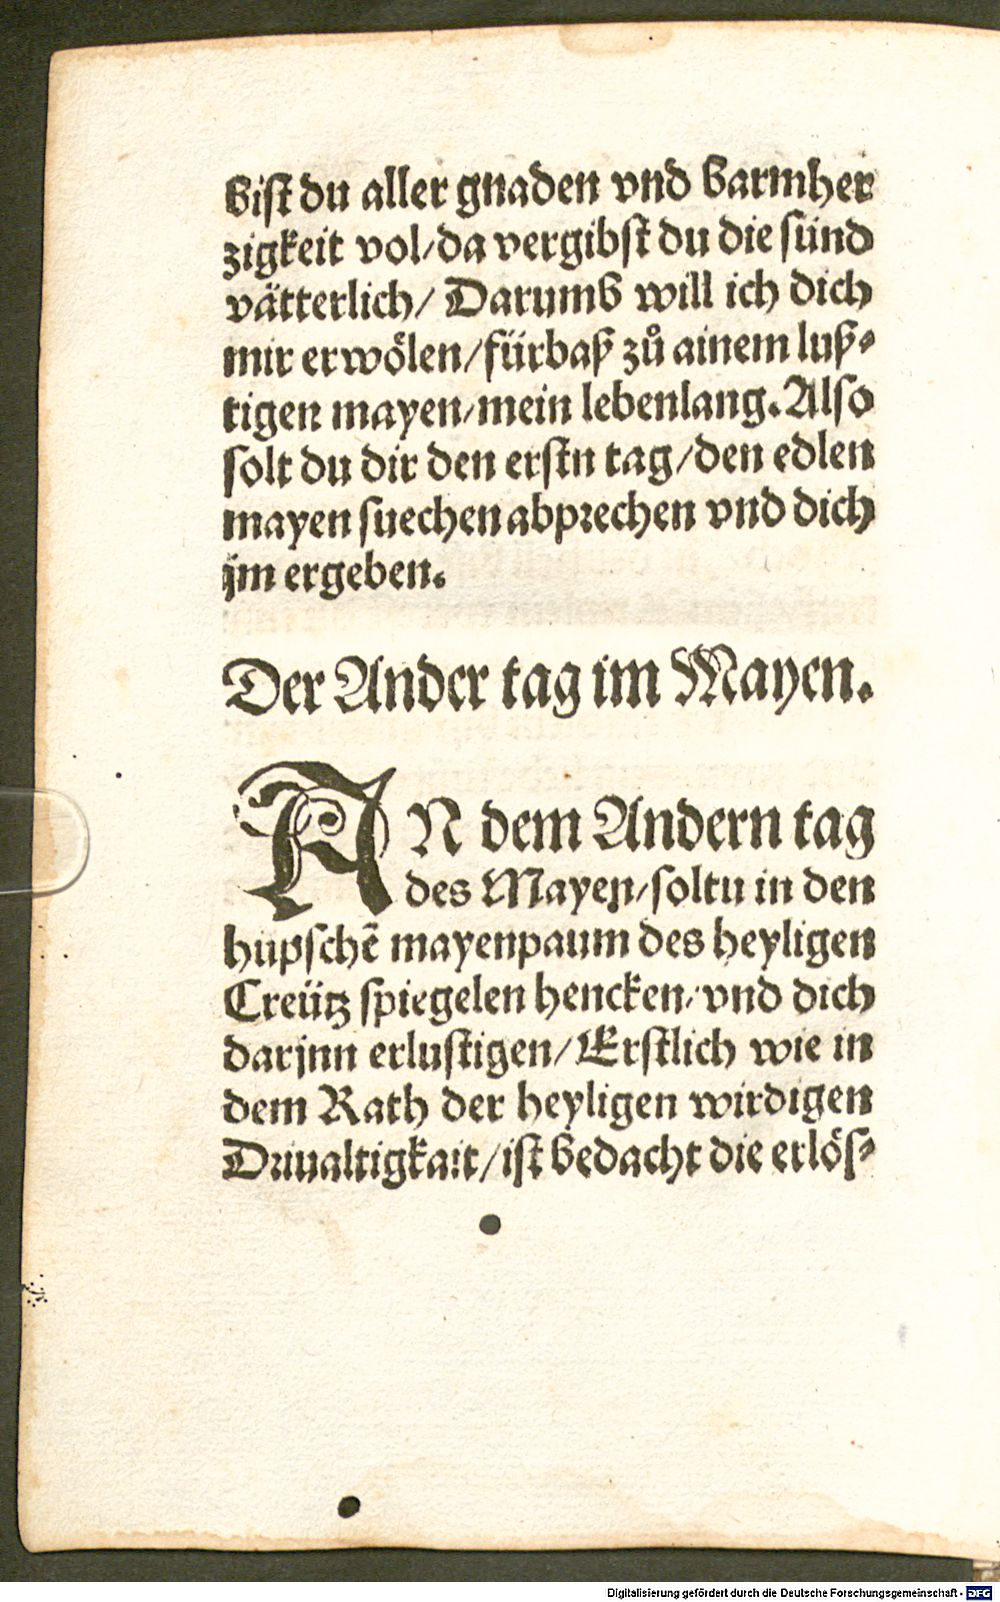 bist du aller gnaden vnd barmher
zigkeit vol/da vergibst du die sünd
vätterlich/ Darumb will ich dich
mir erwölen/fürbaß zů ainem luß⸗
tigen mayen/mein lebenlang. Also
solt du dir den erstn tag/den edlen
mayen suechen abprechen vnd dich
jm ergeben.
Der Ander tag im Mayen.
AN dem Andern tag
des Mayen/soltu in den
hüpschē mayenpaum des heyligen
Creütz spiegelen hencken/vnd dich
darjnn erlustigen/Erstlich wie in
dem Rath der heyligen wirdigen
Driualtigkait/ist bedacht die erlös⸗
Digitalisierung gefördert durch die Deutsche Forschungsgemeinschaft - DFG